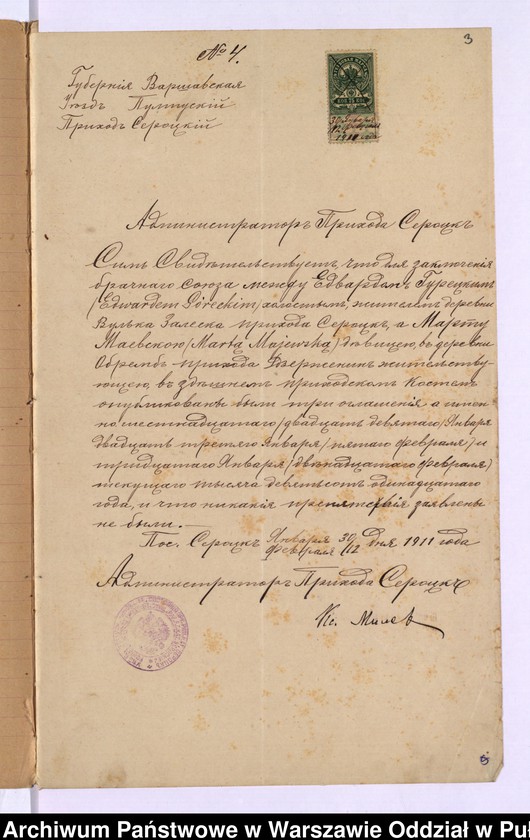 3
№ 4.
Губернія Варшавская
Уездъ Пултускій
Приходъ Сероцкій
30 Января
12 Февраля
1911 года
Администраторъ Прихода Сероцкъ
Симъ Свидѣтельствуетъ что для заключенія
брачнаго союза между Едвардомъ Гурецкимъ
(Edwardem Góreckim) холостымъ, жителемъ деревни
Вулька Залеска прихода Сероцкъ, а Марту
Маевскою (Marta Majewska) дѣвицею, въ деревни
Обрембъ прихода Дзерженинъ жительству-
ющею, въ здѣшнемъ приходскомъ костелѣ
опубликованы были три оглашенія а имен-
но шестнадцатаго (двадцать девятаго) Января
двадцать третьяго Января (пятаго февраля) и
тридцатаго Января (двѣнадцатаго февраля)
текущаго тысяча девятьсотъ одинадцатаго
года, и что никакія препятствія заявлены
не были.—
Пос. Сероцкъ Января 30/Февраля 12 дня 1911 года
Администраторъ Прихода Сероцкъ
Кс.
3
Archiwum Państwowe w Warszawie Oddział w Puł